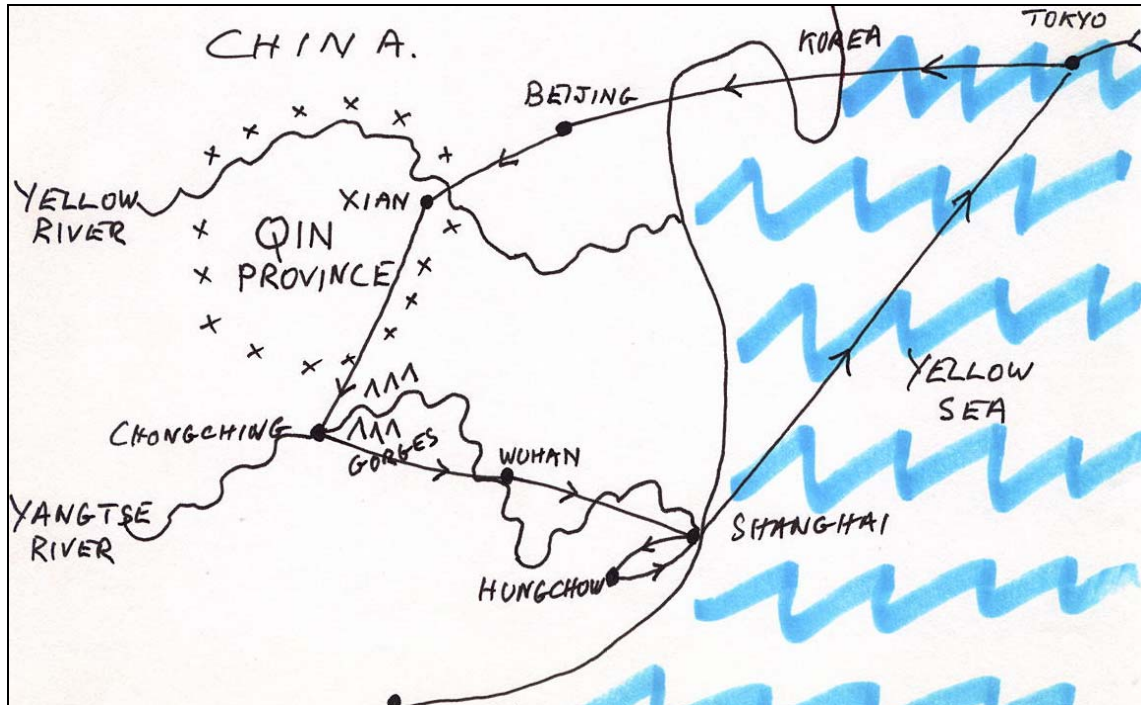 CHINA.
TOKYO
KOREA
BEIJING
YELLOW
RIVER
XIAN
QIN
PROVINCE
YELLOW
SEA
CHONGCHING
GORGES
WUHAN
YANGTSE
RIVER
SHANGHAI
HUNGCHOW